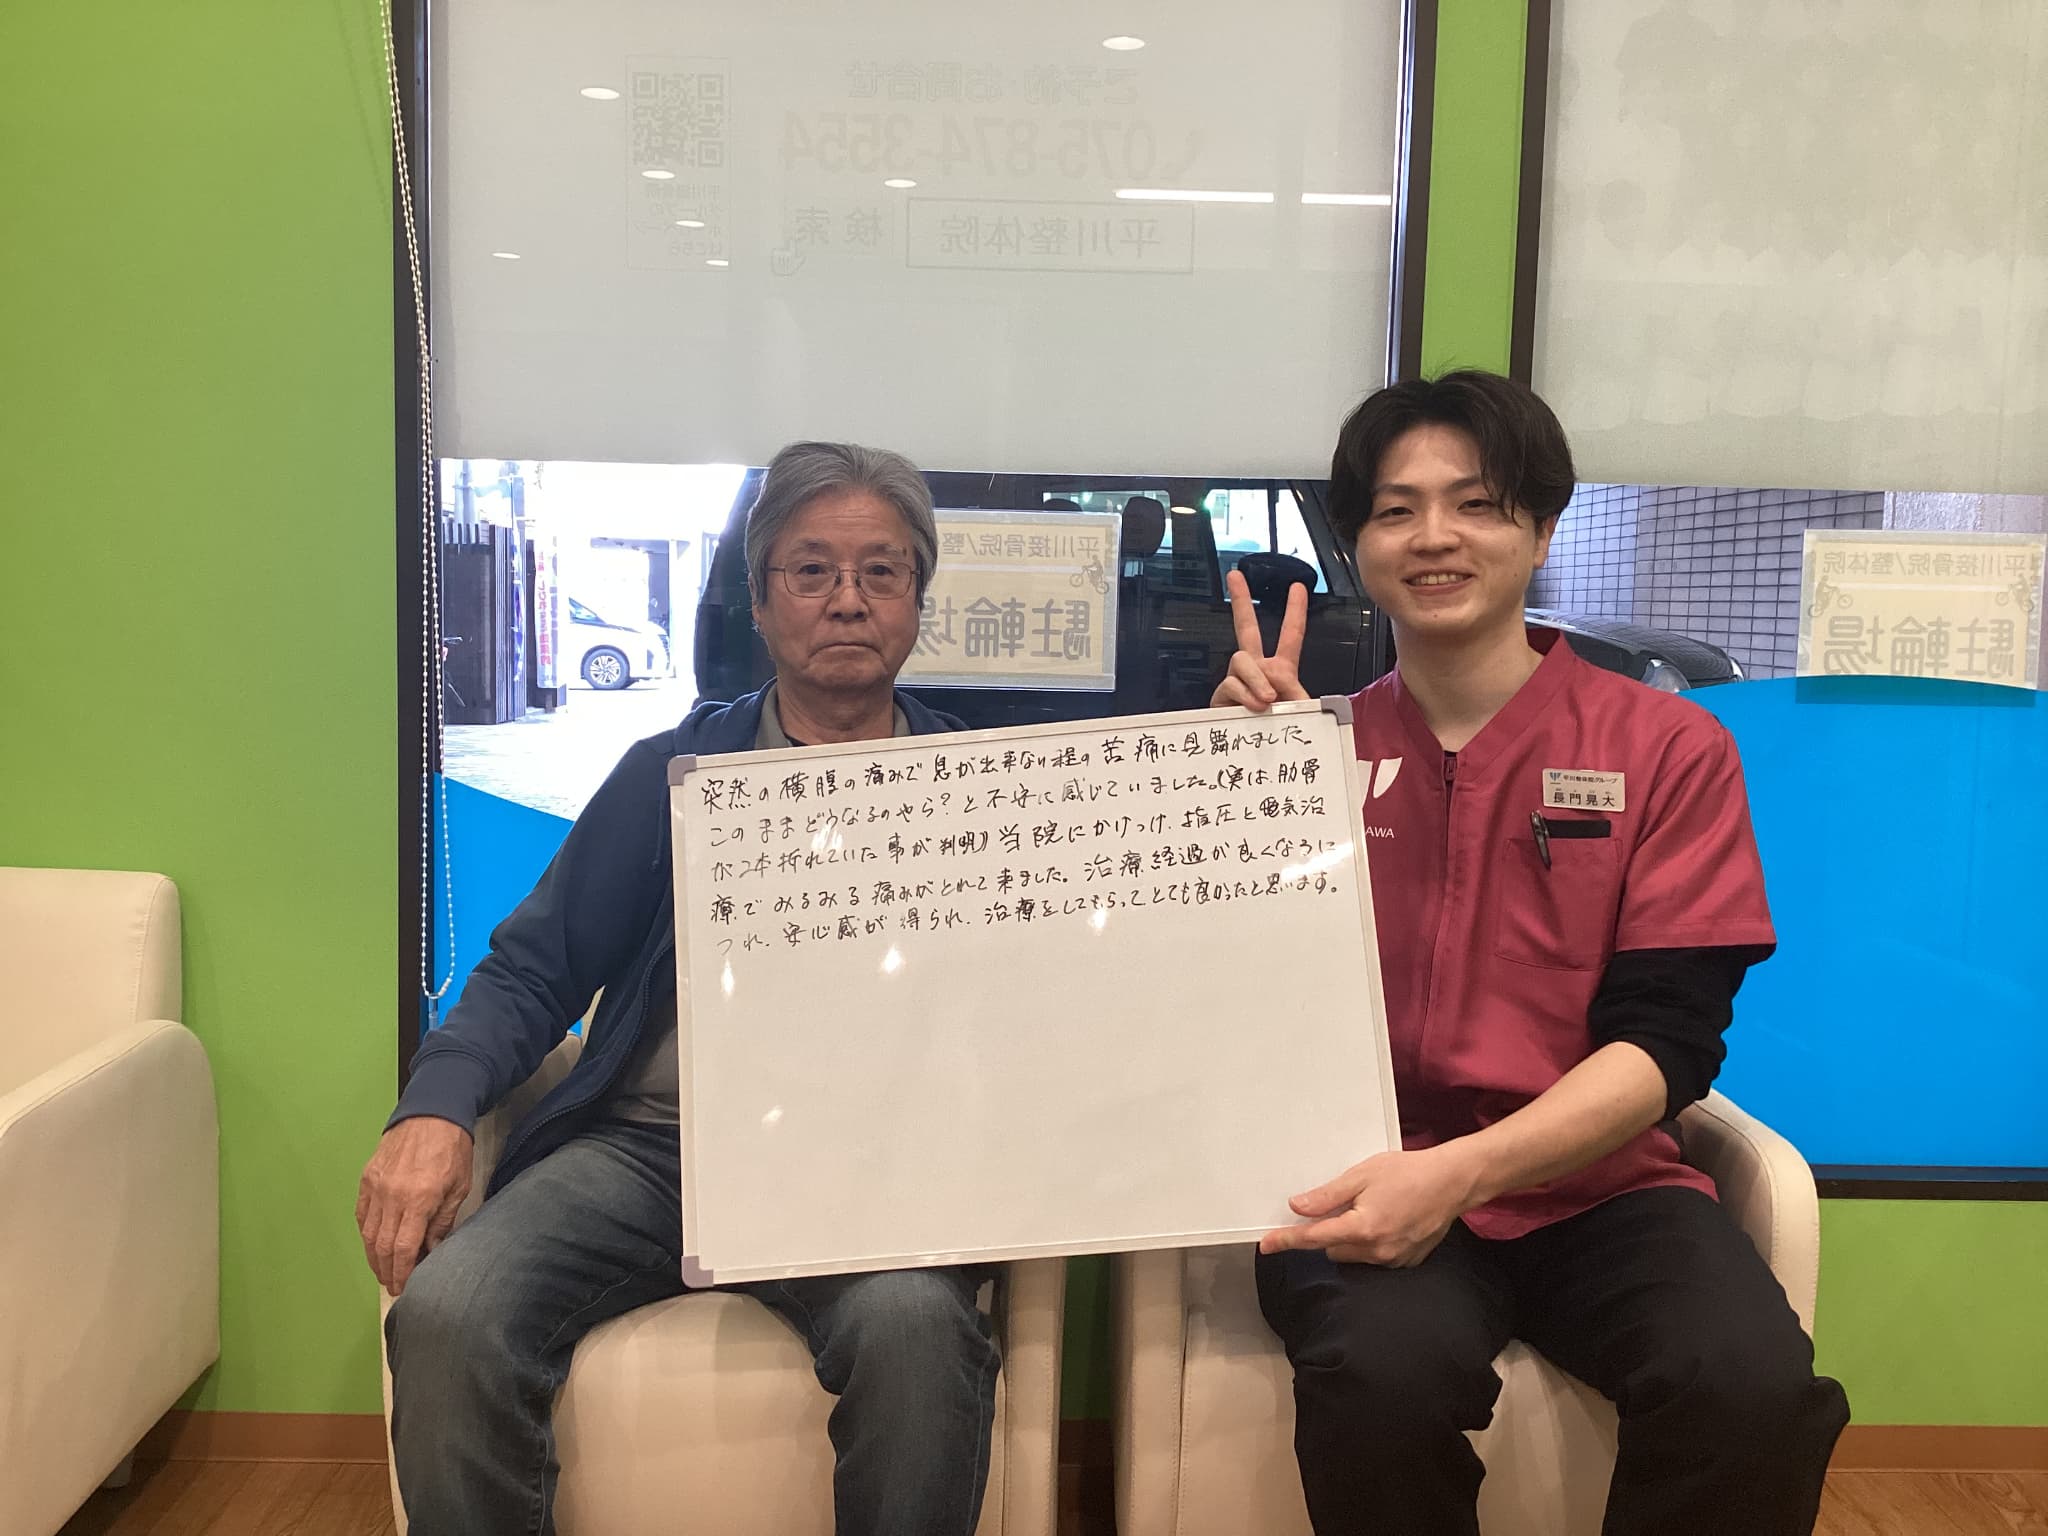 ご予約・お問合せ
075-874-3554
平川整体院 検索
平川接骨院
グループの
ホームページ
はこちら
平川接骨院/整
駐輪場
平川接骨院/整体院
駐輪場
突然の横腹の痛みで息が出来ない程の苦痛に見舞れました。
このままどうなるのやら?と不安に感じていました。(実は、肋骨
が2本折れていた事が判明)当院にかけつけ、指圧と電気治
療でみるみる痛みがとれて来ました。治療経過が良くなるに
つれ、安心感が得られ、治療をしてもらってとても良かったと思います。
平川整体院グループ
長門晃大
AWA